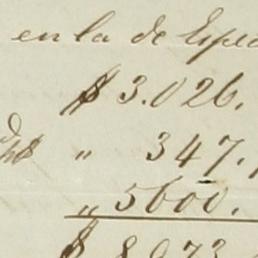 en la de Espe
$ 3.026.
" 347.
" 5600.
$ 8.973.